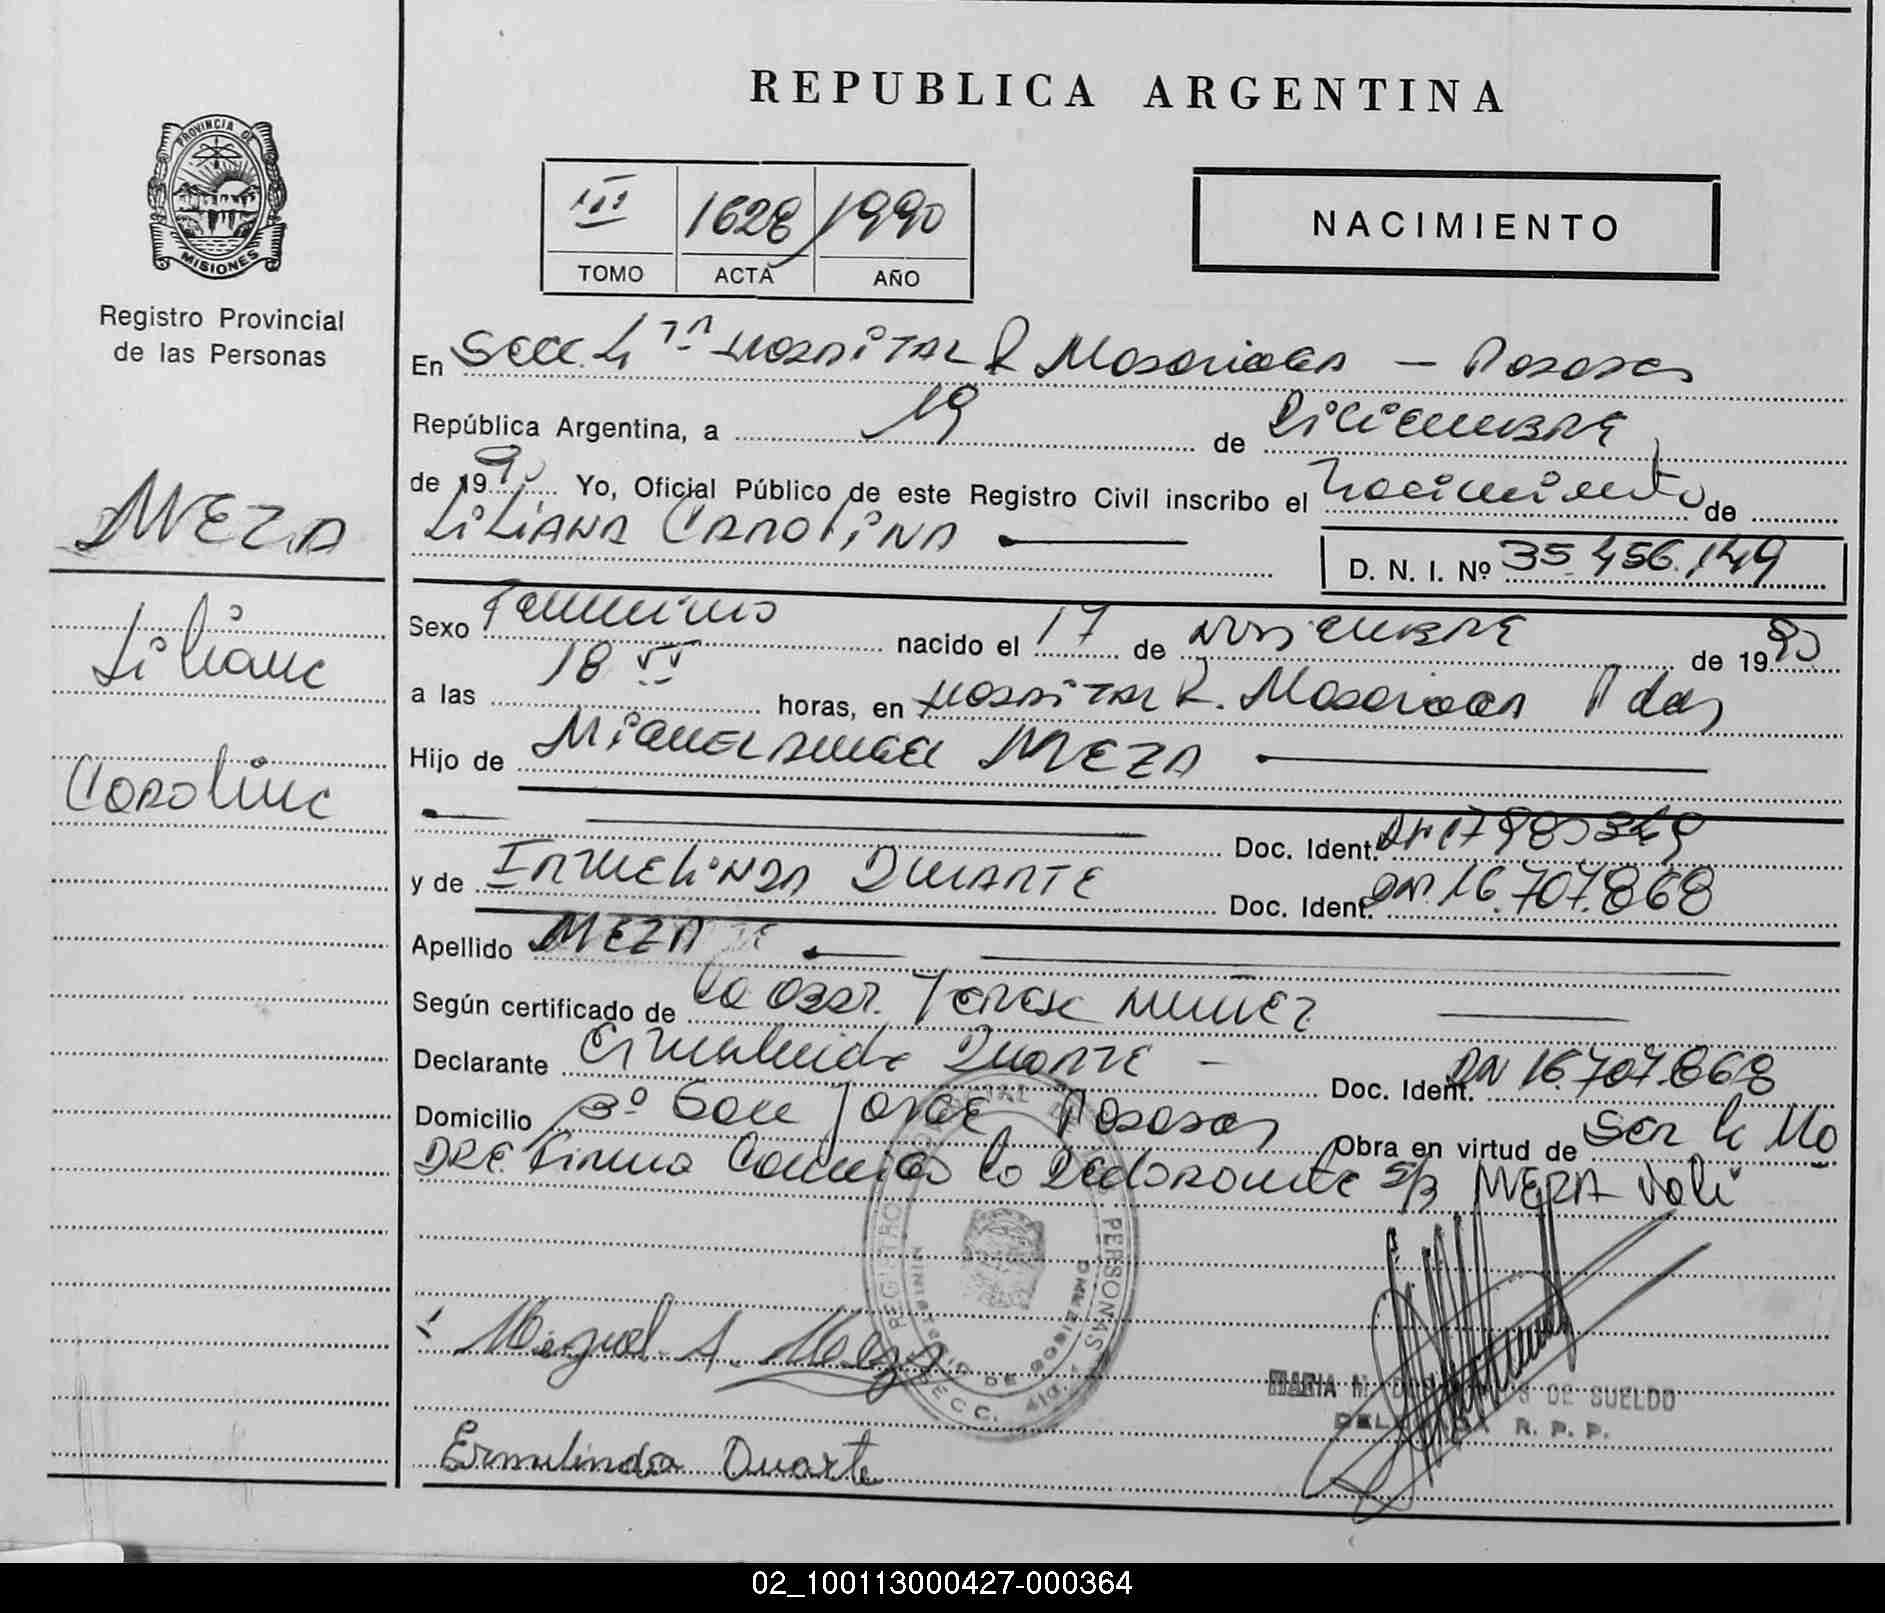 REPUBLICA ARGENTINA
PROVINCIA DE
MISIONES
Registro Provincial
de las Personas
III 1628 1990
TOMO ACTA AÑO
NACIMIENTO
MEZA
Liliana
Carolina
En Secc. 4 Hospital R Madariaga — Posadas
República Argentina, a 19 de Diciembre
de 1990 Yo, Oficial Público de este Registro Civil inscribo el Nacimiento de
LILIANA CAROLINA
D. N. I. Nº 35.456.149
Sexo Femenino nacido el 17 de Noviembre de 1990
a las 18 horas, en Hospital R. Madariaga Pdas
Hijo de Miguel Angel MEZA
Doc. Ident.
y de Duarte Doc. Ident. 16.707.868
Apellido MEZA
Según certificado de la Obst. Teresa
Declarante Duarte - Doc. Ident. DN 16.707.868
Domicilio Bº San Jorge Posadas Obra en virtud de Ser la Ma
dre Firma Conmigo la Declarante s/r MEZA Vale
REGISTRO PERSONAS
MINISTERIO DE GOBIERNO
SECC. 4ta.
Miguel A. Meza
Ermelinda Duarte
MARIA DE SUELDO
R. P. P.
02_100113000427-000364